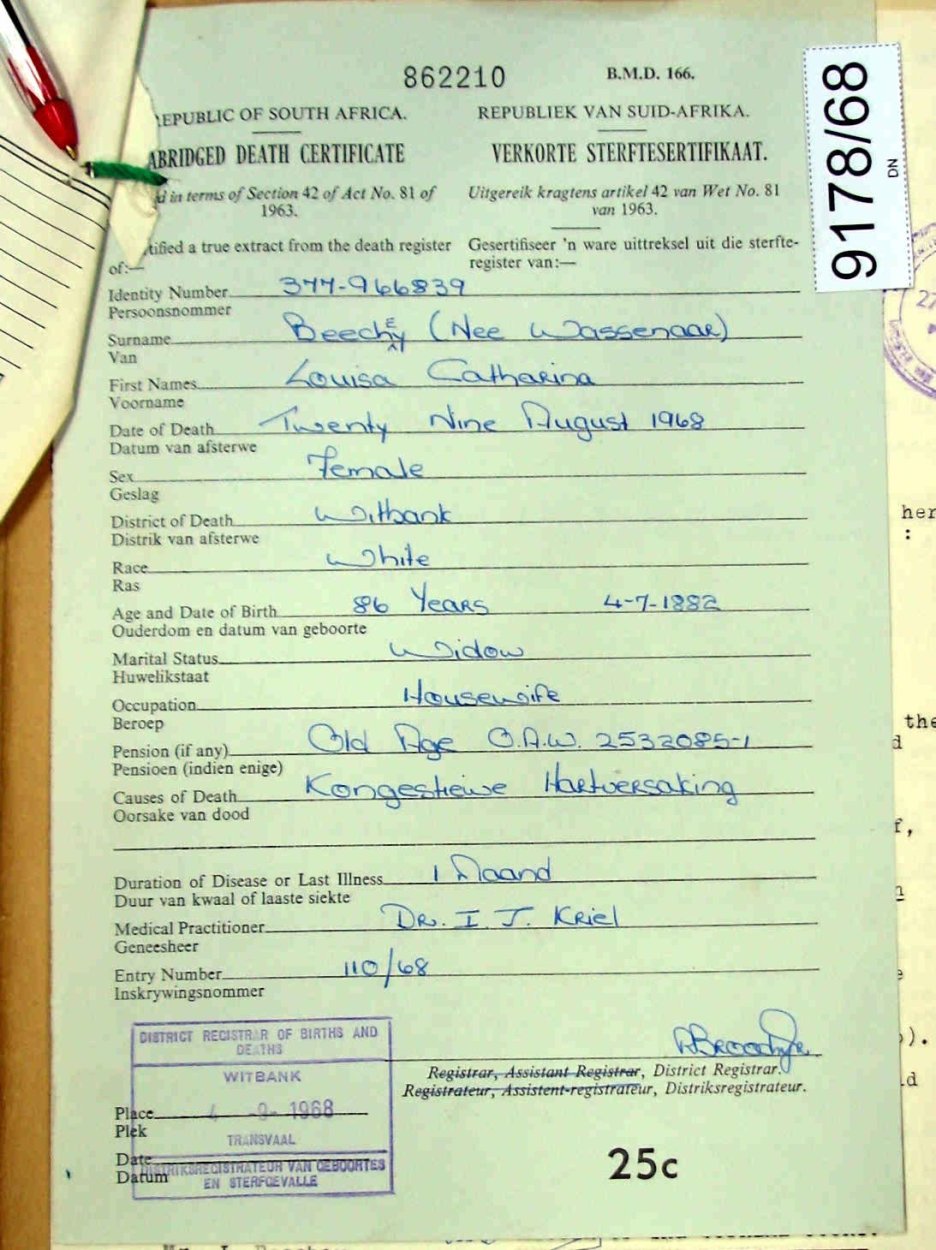 862210
B.M.D. 166.
9178/68
DN
REPUBLIC OF SOUTH AFRICA.
REPUBLIEK VAN SUID-AFRIKA.
ABRIDGED DEATH CERTIFICATE
VERKORTE STERFTESERTIFIKAAT.
d in terms of Section 42 of Act No. 81 of
1963.
Uitgereik kragtens artikel 42 van Wet No. 81
van 1963.
tified a true extract from the death register
of:—
Gesertifiseer 'n ware uittreksel uit die sterfte-
register van:—
Identity Number 377-966839
Persoonsnommer
Surname Beechey (Nee Wassenaar)
Van
First Names Louisa Catharina
Voorname
Date of Death Twenty Nine August 1968
Datum van afsterwe
Sex Female
Geslag
District of Death Witbank
Distrik van afsterwe
Race White
Ras
Age and Date of Birth 86 Years 4-7-1882
Ouderdom en datum van geboorte
Marital Status Widow
Huwelikstaat
Occupation Housewife
Beroep
Pension (if any) Old Age O.A.W. 2532085-1
Pensioen (indien enige)
Causes of Death Kongestiewe Hartversaking
Oorsake van dood
Duration of Disease or Last Illness 1 Maand
Duur van kwaal of laaste siekte
Medical Practitioner Dr. I. J. Kriel
Geneesheer
Entry Number 110/68
Inskrywingsnommer
DISTRICT REGISTRAR OF BIRTHS AND
DEATHS
WITBANK
Place 4 -9- 1968
Plek
TRANSVAAL
Date
Datum
DISTRIKSREGISTRATEUR VAN GEBOORTES
EN STERFGEVALLE
Registrar, Assistant Registrar, District Registrar.
Registrateur, Assistent-registrateur, Distriksregistrateur.
25c
her
:
the
d
f,
).